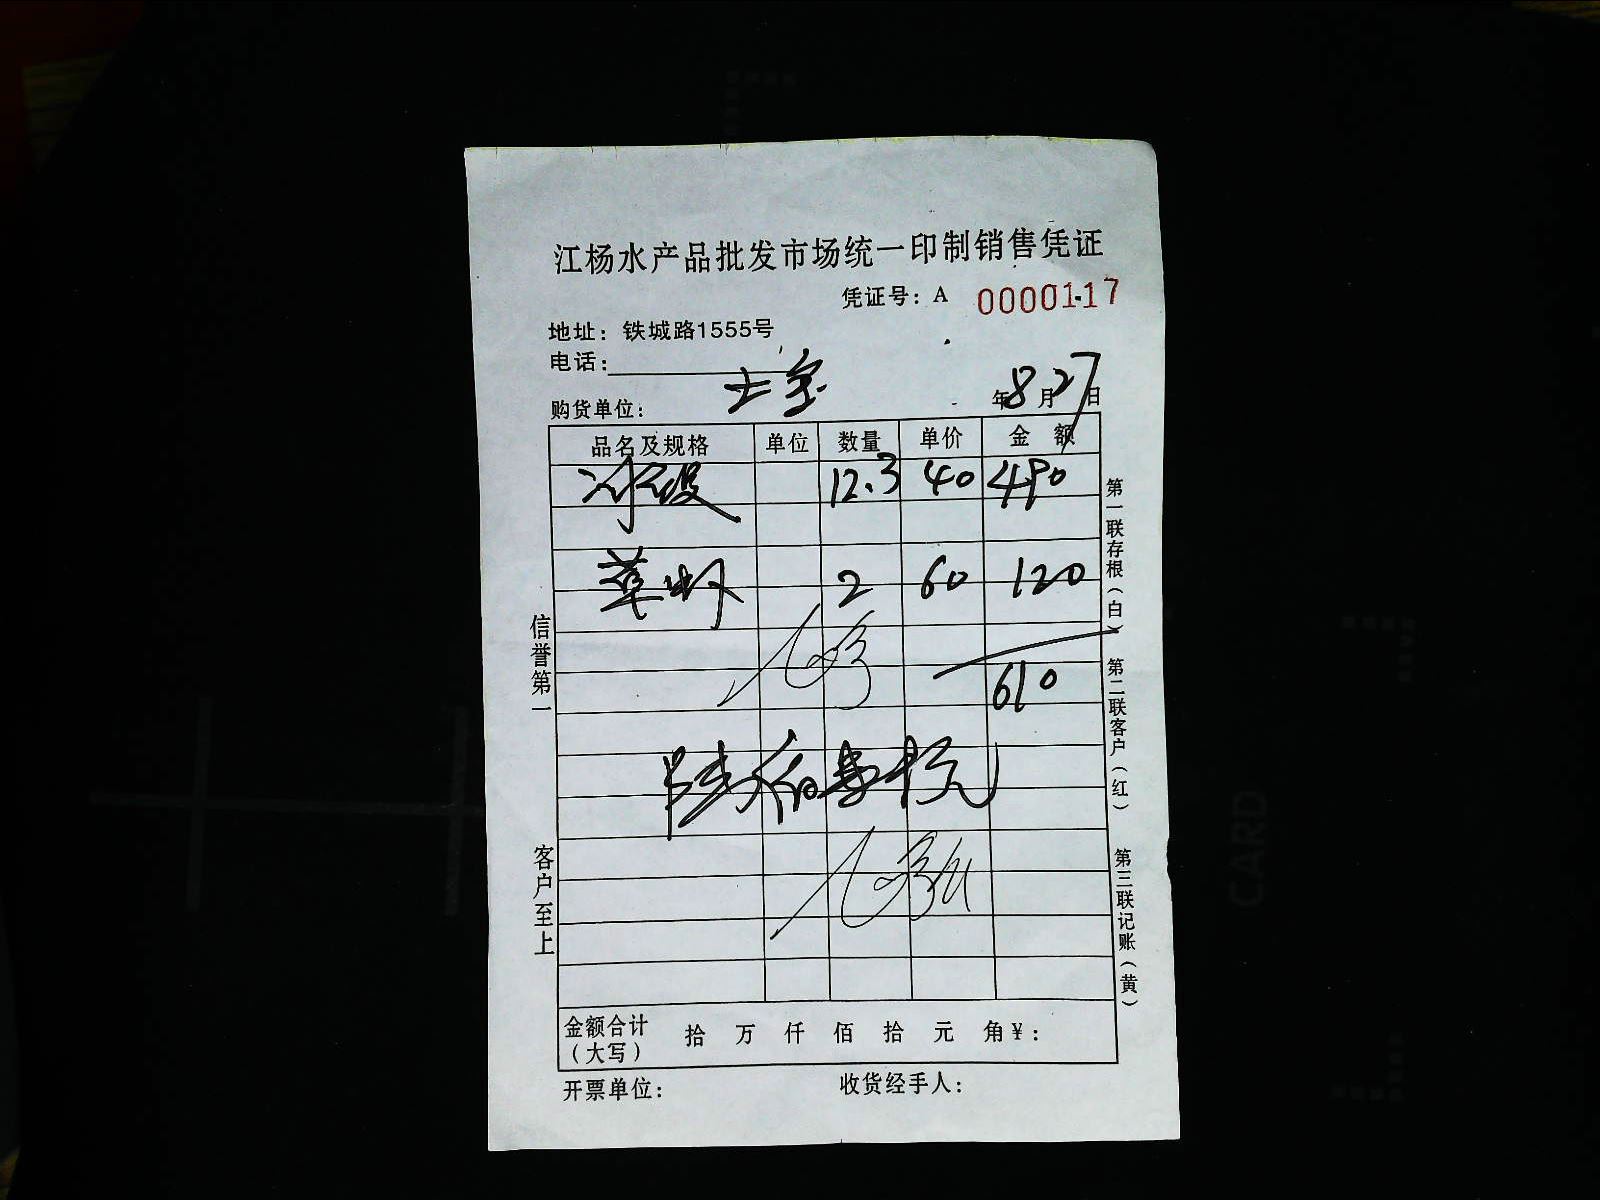 江杨水产品批发市场统一印制销售凭证
凭证号：A 0000117
地址：铁城路1555号
电话：
购货单位： 年8月27日
品名及规格 单位 数量 单价 金额
12.3 40 490
草虾 2 60 120
610
陆佰壹拾元
金额合计（大写） 拾 万 仟 佰 拾 元 角¥：
开票单位： 收货经手人：
信誉第一
客户至上
第一联存根（白）
第二联客户（红）
第三联记账（黄）
CARD